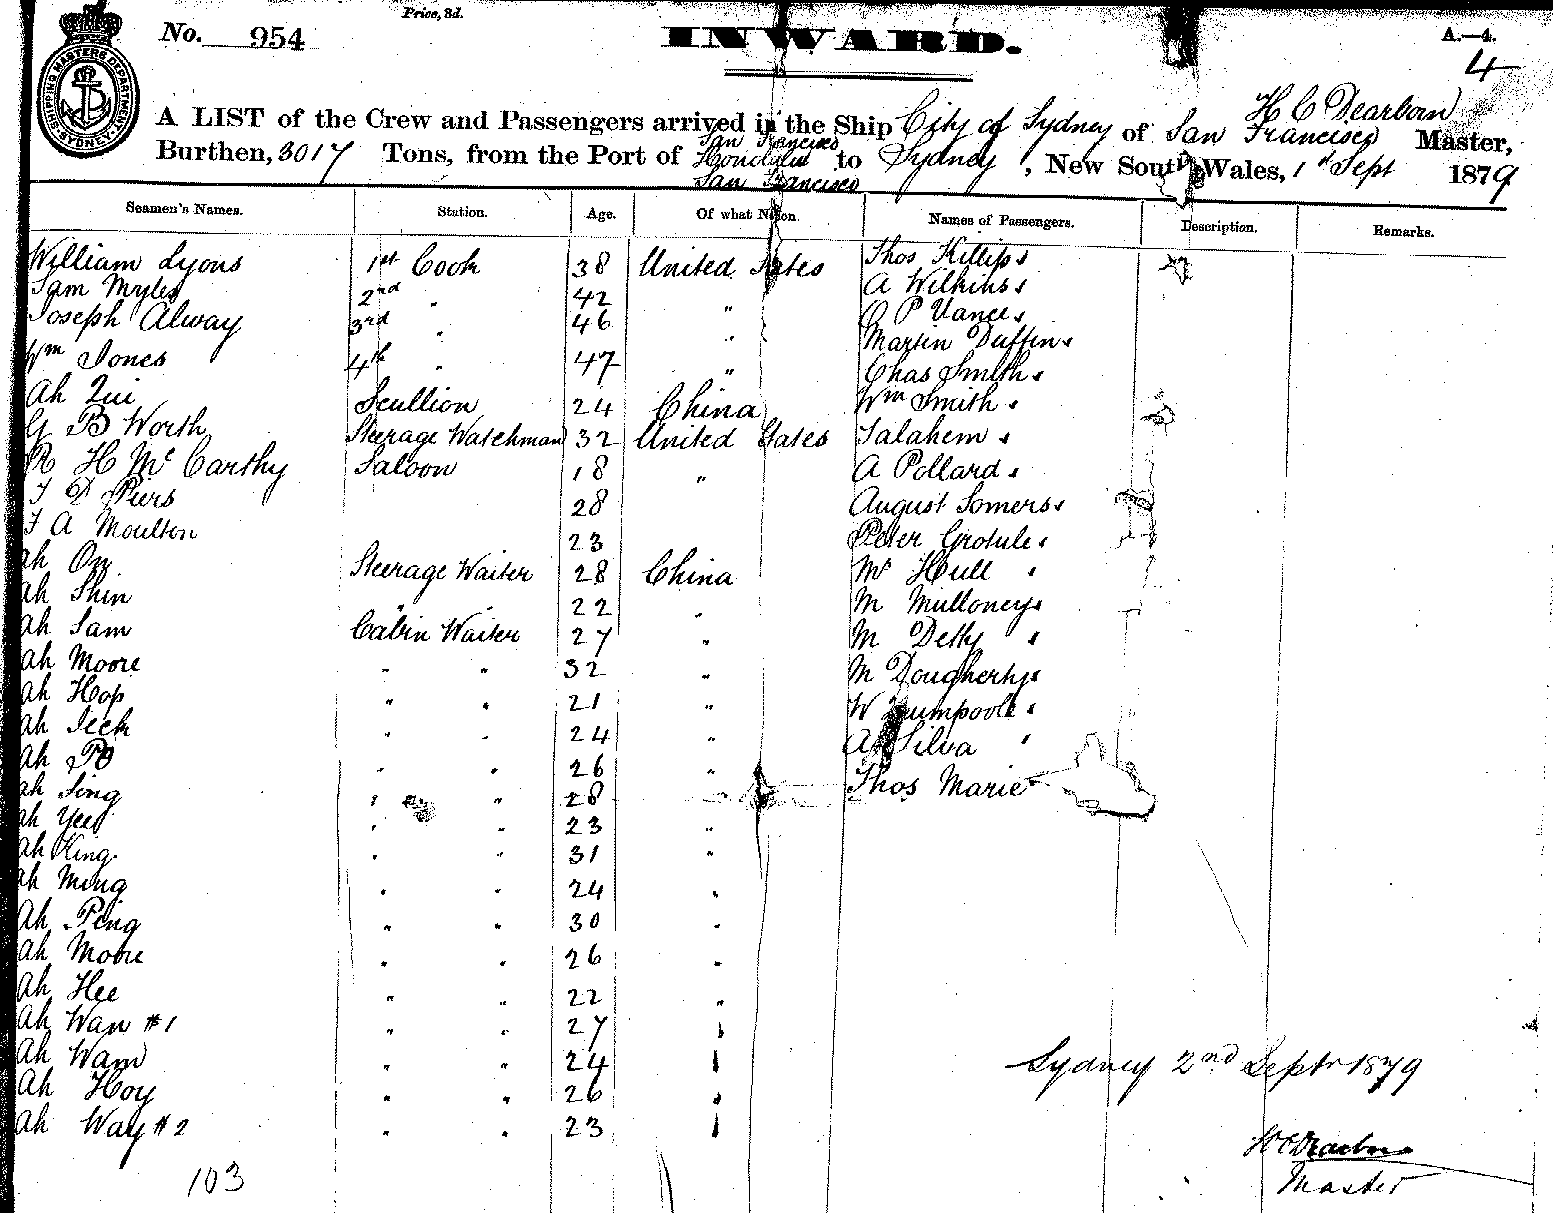 Price, 3d.
No. 954
INWARD.
A.—4.
4
SHIPPING MASTERS DEPARTMENT SYDNEY
H C Dearborn
A LIST of the Crew and Passengers arrived in the Ship City of Sydney of San Francisco Master,
San Francisco
Burthen, 3017 Tons, from the Port of Honolulu to Sydney, New South Wales, 1st Sept 1879
San Francisco
Seamen's Names. Station. Age. Of what Nation. Names of Passengers. Description. Remarks.
William Lyons 1st Cook 38 United States Thos Killips
Sam Myles 2nd " 42 " A Wilkins
Joseph Alway 3rd " 46 " P Vance
Wm Jones 4th " 47 " Martin Duffin
Chas Smith
Ah Qui Scullion 24 China Wm Smith
G B Worth Steerage Watchman 32 United States Talahem
R H McCarthy Saloon 18 " A Pollard
F D Piers 28 August Somers
F A Moulton 23 Peter Grotule
Ah On Steerage Waiter 28 China Mr Hull "
Ah Shin " " 22 " M Mulloney
Ah Sam Cabin Waiter 27 " M Detty "
Ah Moore " " 32 " M Dougherty
Ah Hop " " 21 " W
Ah Seck " " 24 " A Silva "
Ah Po " " 26 " Thos Marie
Ah Sing " " 28 "
Ah Yee " " 23 "
Ah King " " 31 "
Ah Ming " " 24 "
Ah Ping " " 30 "
Ah Moore " " 26 "
Ah Hee " " 22 "
Ah Wan #1 " " 27 "
Ah Wam " " 24 "
Ah Hoy " " 26 "
Ah Way #2 " " 23 "
Sydney 2nd Septr 1879
H C Dearborn
Master
103